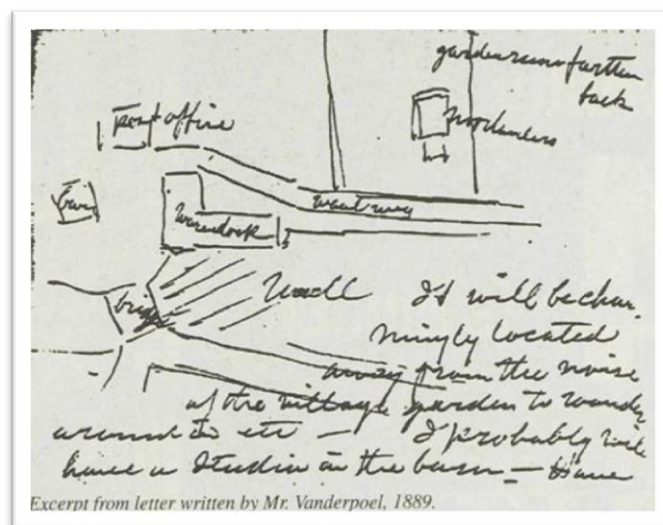 garden runs farther
back
post office
barn
Wall
It will be char-
mingly located
away from the noise
of the village garden to wander
around in etc — I probably will
have a Studio in the barn — Have
Excerpt from letter written by Mr. Vanderpoel, 1889.